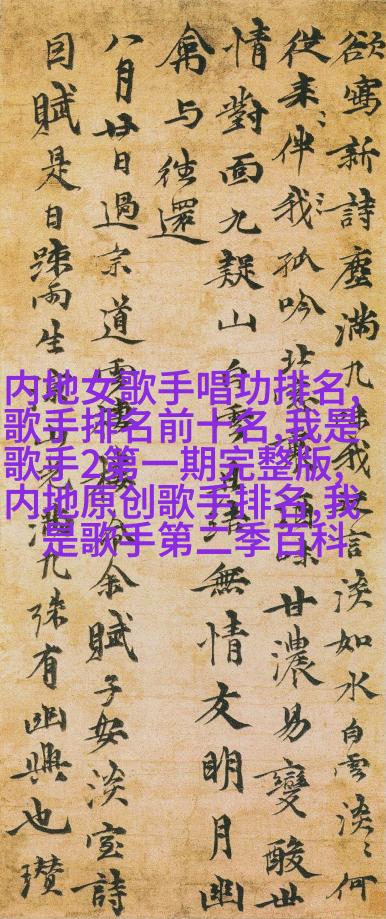 欲寫新詩塵滿九我淡如水白雲淡ミ何
從来ミ伴我ミ孤吟味甘濃易變酸世
情對面九疑山白雲無情友明月幽
禽与往還
八月廿日過宗道分余賦子安淡室詩
賦是自踈雨生滿九有幽興也瓚
内地女歌手唱功排名,
歌手排名前十名,我是
歌手2第一期完整版,
内地原创歌手排名,我
是歌手第二季百科